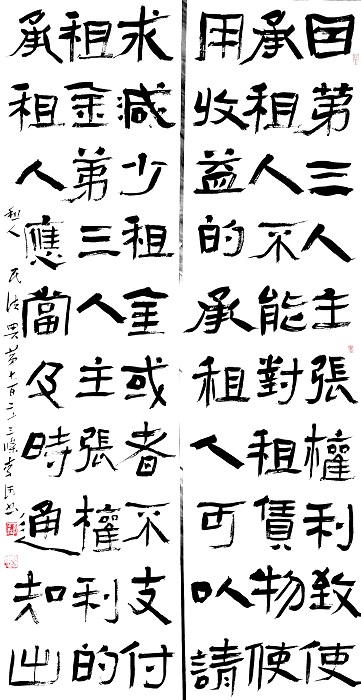 因第三人主張權利致使
承租人不能對租賃物使
用收益的承租人可以請
求減少租金或者不支付
租金第三人主張權利的
承租人應當及時通知出
租人 民法典第七百二十三條